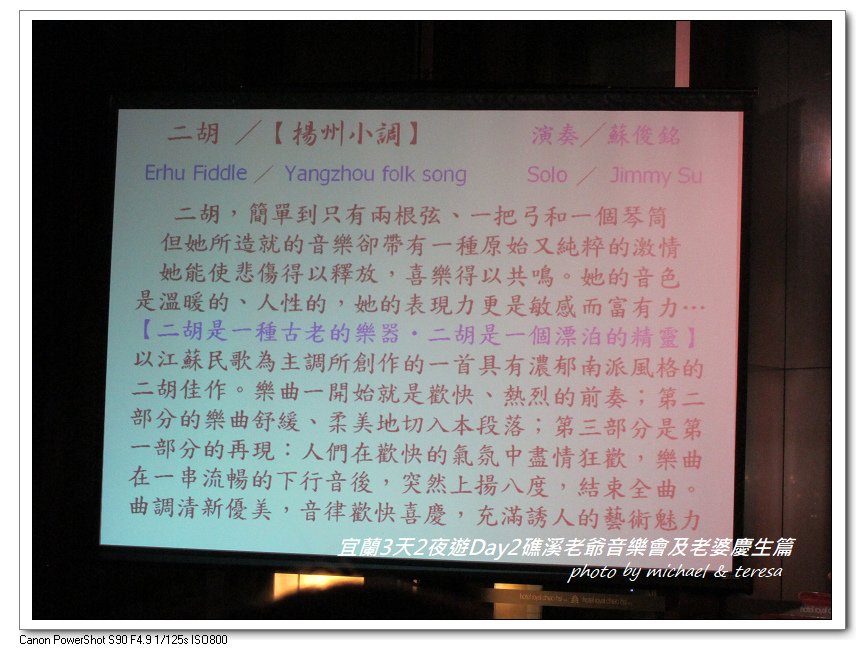 二胡 ／【揚州小調】 演奏／蘇俊銘
Erhu Fiddle ／ Yangzhou folk song Solo ／ Jimmy Su
二胡，簡單到只有兩根弦、一把弓和一個琴筒
但她所造就的音樂卻帶有一種原始又純粹的激情
她能使悲傷得以釋放，喜樂得以共鳴。她的音色
是溫暖的、人性的，她的表現力更是敏感而富有力…
【二胡是一種古老的樂器‧二胡是一個漂泊的精靈】
以江蘇民歌為主調所創作的一首具有濃郁南派風格的
二胡佳作。樂曲一開始就是歡快、熱烈的前奏；第二
部分的樂曲舒緩、柔美地切入本段落；第三部分是第
一部分的再現：人們在歡快的氣氛中盡情狂歡，樂曲
在一串流暢的下行音後，突然上揚八度，結束全曲。
曲調清新優美，音律歡快喜慶，充滿誘人的藝術魅力
宜蘭3天2夜遊Day2礁溪老爺音樂會及老婆慶生篇
photo by michael & teresa
Canon PowerShot S90 F4.9 1/125s ISO800